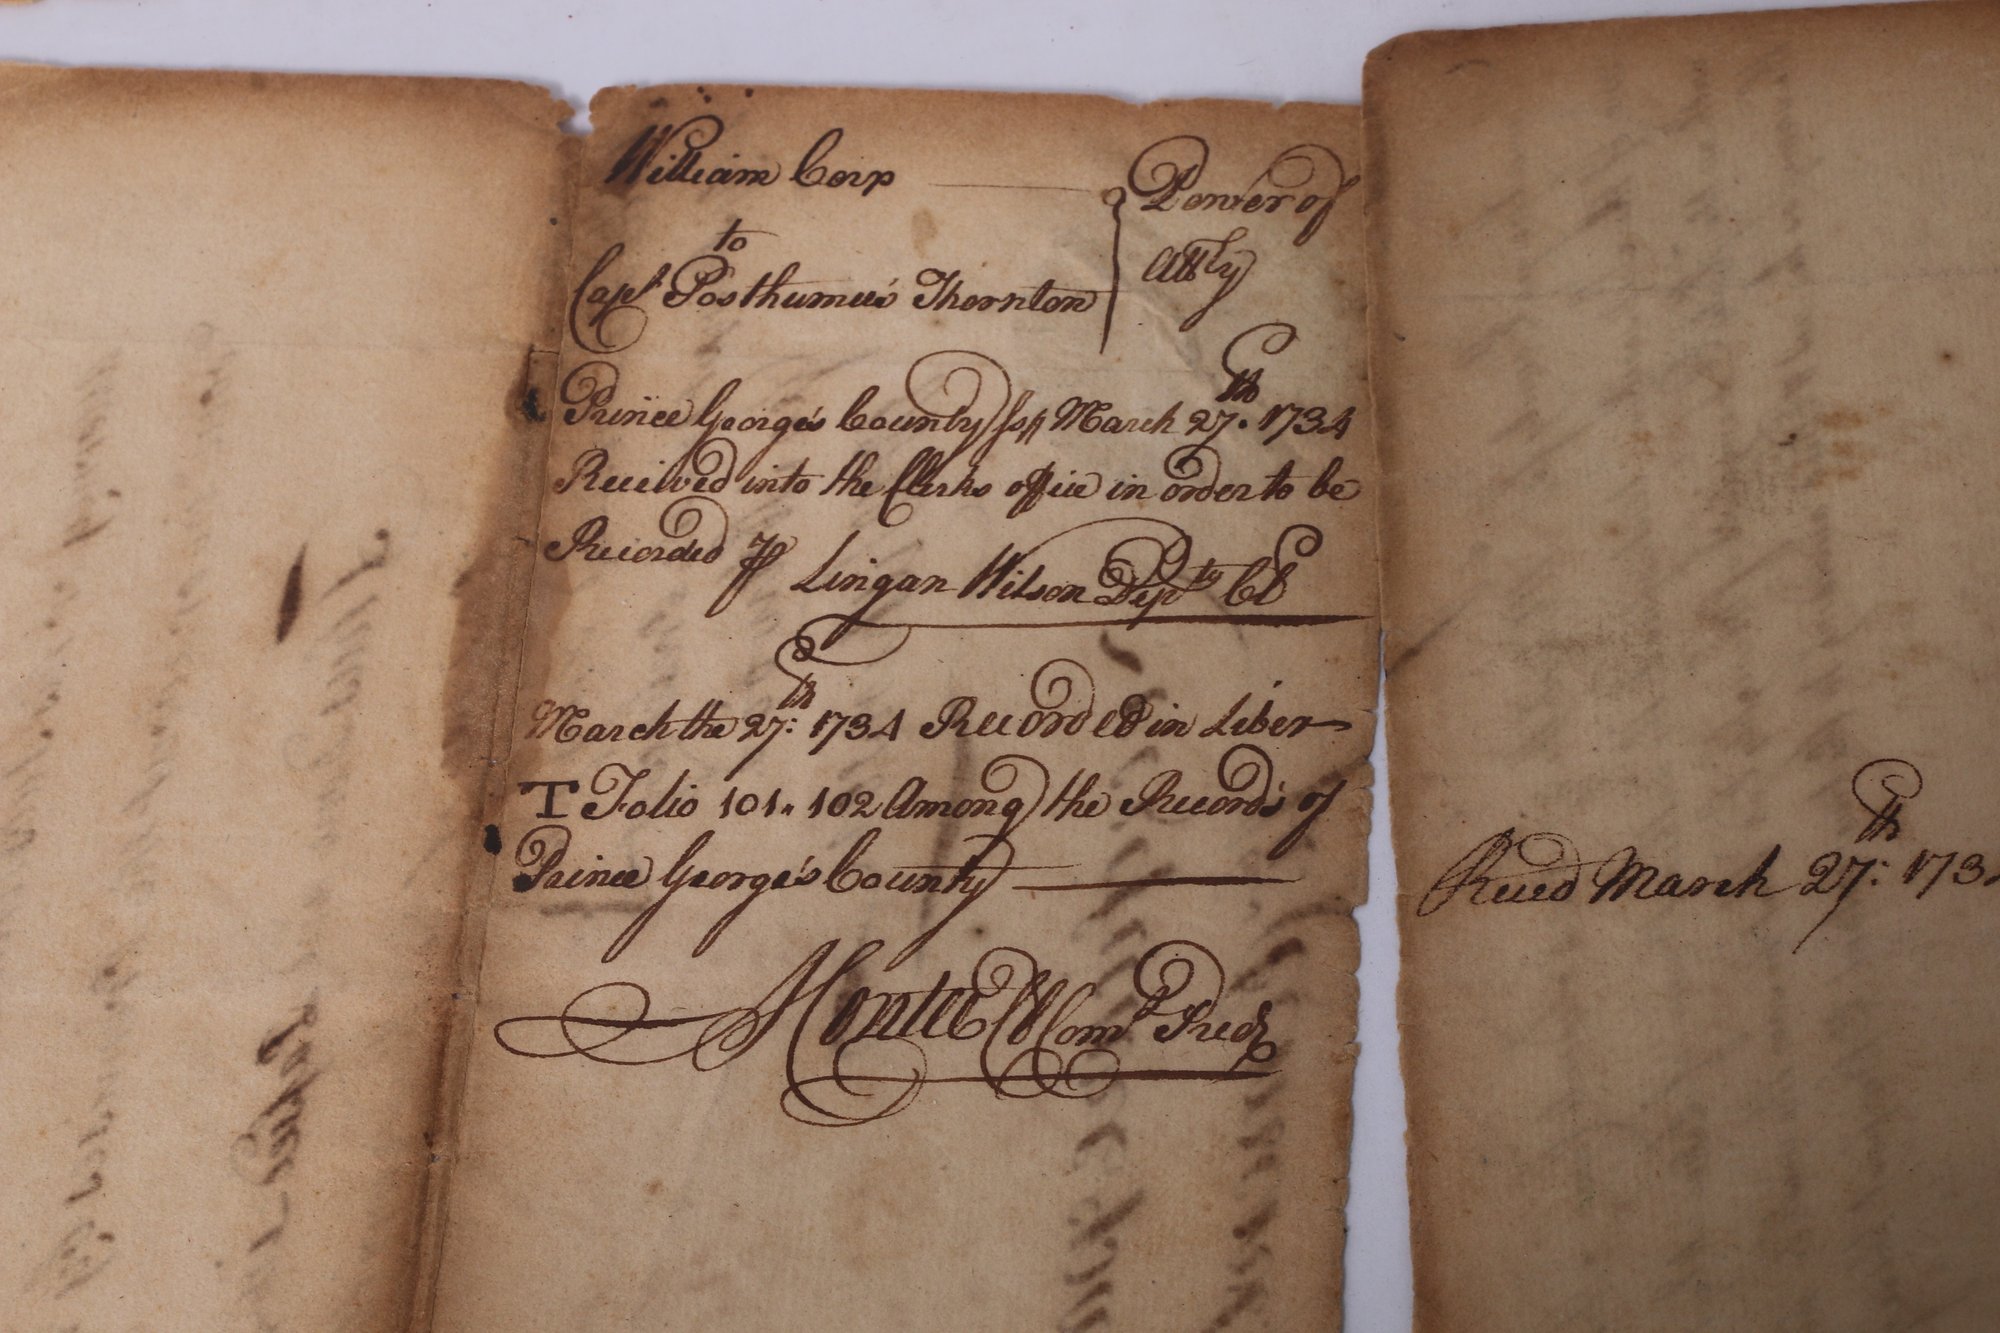 William Corp
Power of
to
Att^ry
Cap^t Posthumus Thornton
Prince George's County ss March 27^th. 1734
Received into the Clerks office in order to be
Recorded P Lingan Wilson Dep^ty Cl
March the 27:^th 1734 Recorded in Liber
T Folio 101. 102 Among the Records of
Prince George's County
Com^t Rec^d
Reced March 27:^th 173